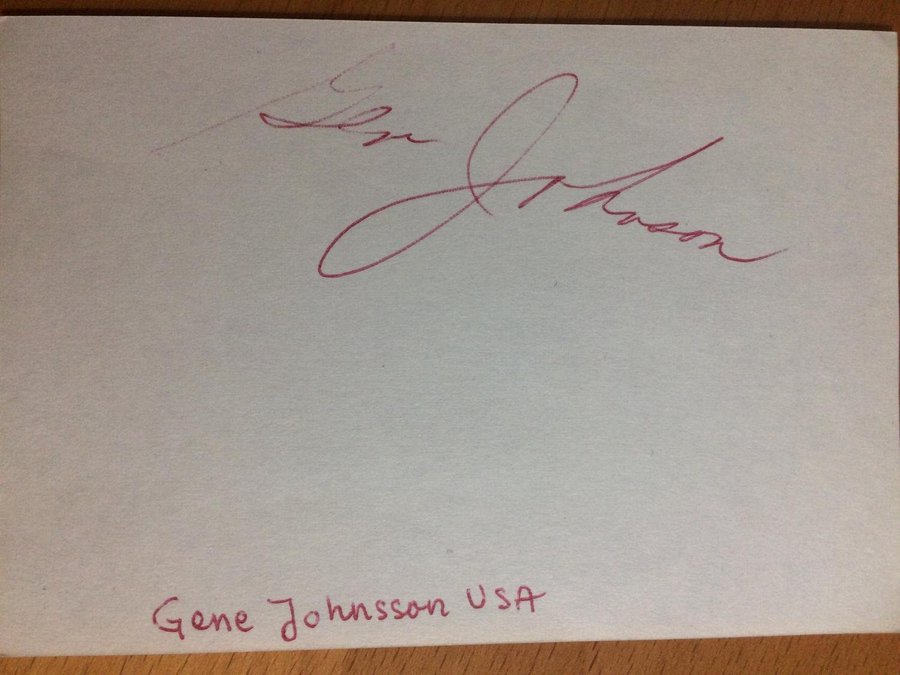 Gene Johnson
Gene Johnsson USA